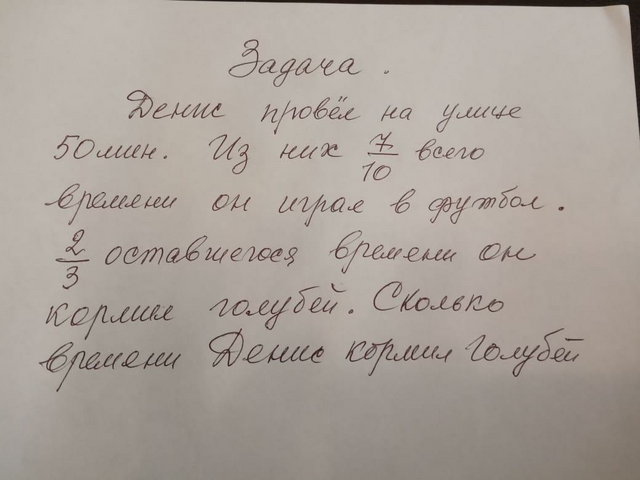 Задача.
Денис провёл на улице
50 мин. Из них 7/10 всего
времени он играл в футбол.
2/3 оставшегося времени он
кормил голубей. Сколько
времени Денис кормил голубей